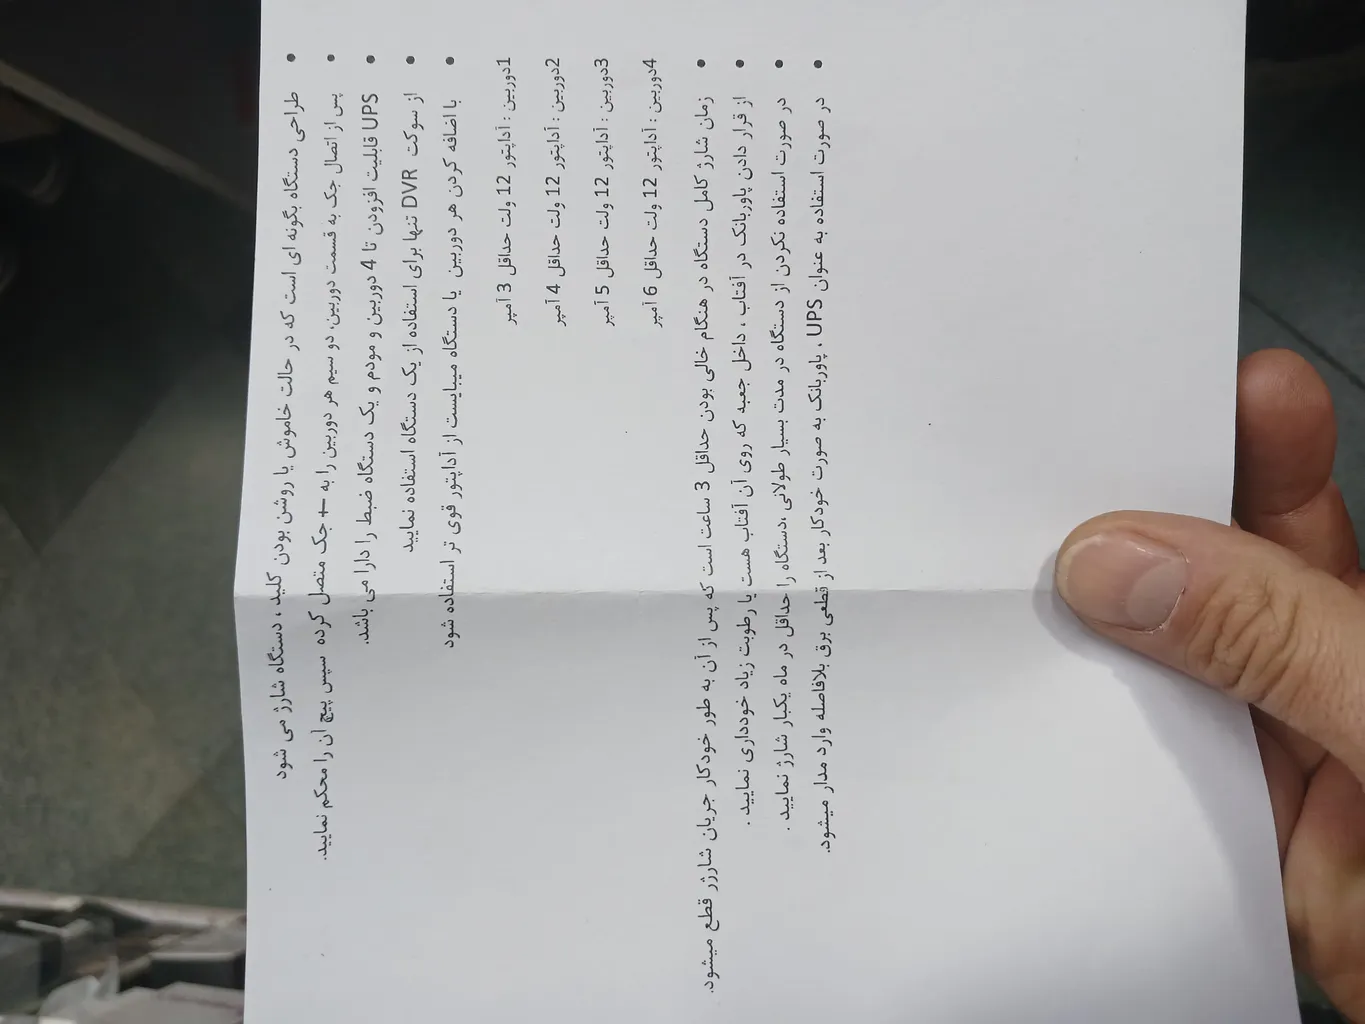 • طراحی دستگاه بگونه ای است که در حالت خاموش یا روشن بودن کلید ، دستگاه شارژ می شود
• پس از اتصال جک به قسمت دوربین، دو سیم هر دوربین را به +- جک متصل کرده سپس پیچ آن را محکم نمایید.
• UPS قابلیت افزودن تا 4 دوربین و مودم و یک دستگاه ضبط را دارا می باشد.
• از سوکت DVR تنها برای استفاده از یک دستگاه استفاده نمایید
• با اضافه کردن هر دوربین یا دستگاه میبایست از آداپتور قوی تر استفاده شود
1دوربین : آداپتور 12 ولت حداقل 3 آمپر
2دوربین : آداپتور 12 ولت حداقل 4 آمپر
3دوربین : آداپتور 12 ولت حداقل 5 آمپر
4دوربین : آداپتور 12 ولت حداقل 6 آمپر
• زمان شارژ کامل دستگاه در هنگام خالی بودن حداقل 3 ساعت است که پس از آن به طور خودکار جریان شارژر قطع میشود.
• از قرار دادن پاوربانک در آفتاب ، داخل جعبه که روی آن آفتاب هست یا رطوبت زیاد خودداری نمایید .
• در صورت استفاده نکردن از دستگاه در مدت بسیار طولانی ،دستگاه را حداقل در ماه یکبار شارژ نمایید .
• در صورت استفاده به عنوان UPS ، پاوربانک به صورت خودکار بعد از قطعی برق بلافاصله وارد مدار میشود.